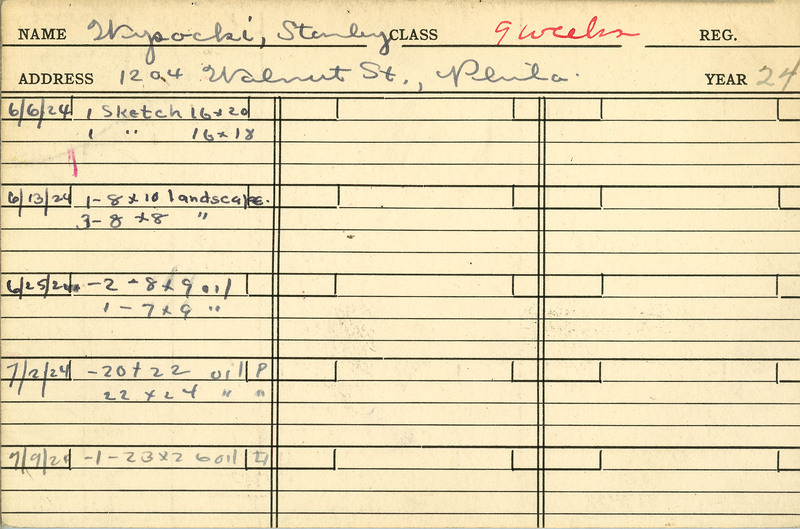 NAME Wysocki, Stanley CLASS 9 weeks REG.
ADDRESS 1204 Walnut St., Phila. YEAR 24
6/6/24 1 Sketch 16x20
1 " 16x18
6/13/24 1-8x10 landscape.
3-8x8 "
6/25/24 -2-8x9 oil
1-7x9 "
7/2/24 -20+22 oil P
22x24 " "
7/9/24 -1-23x26 oil